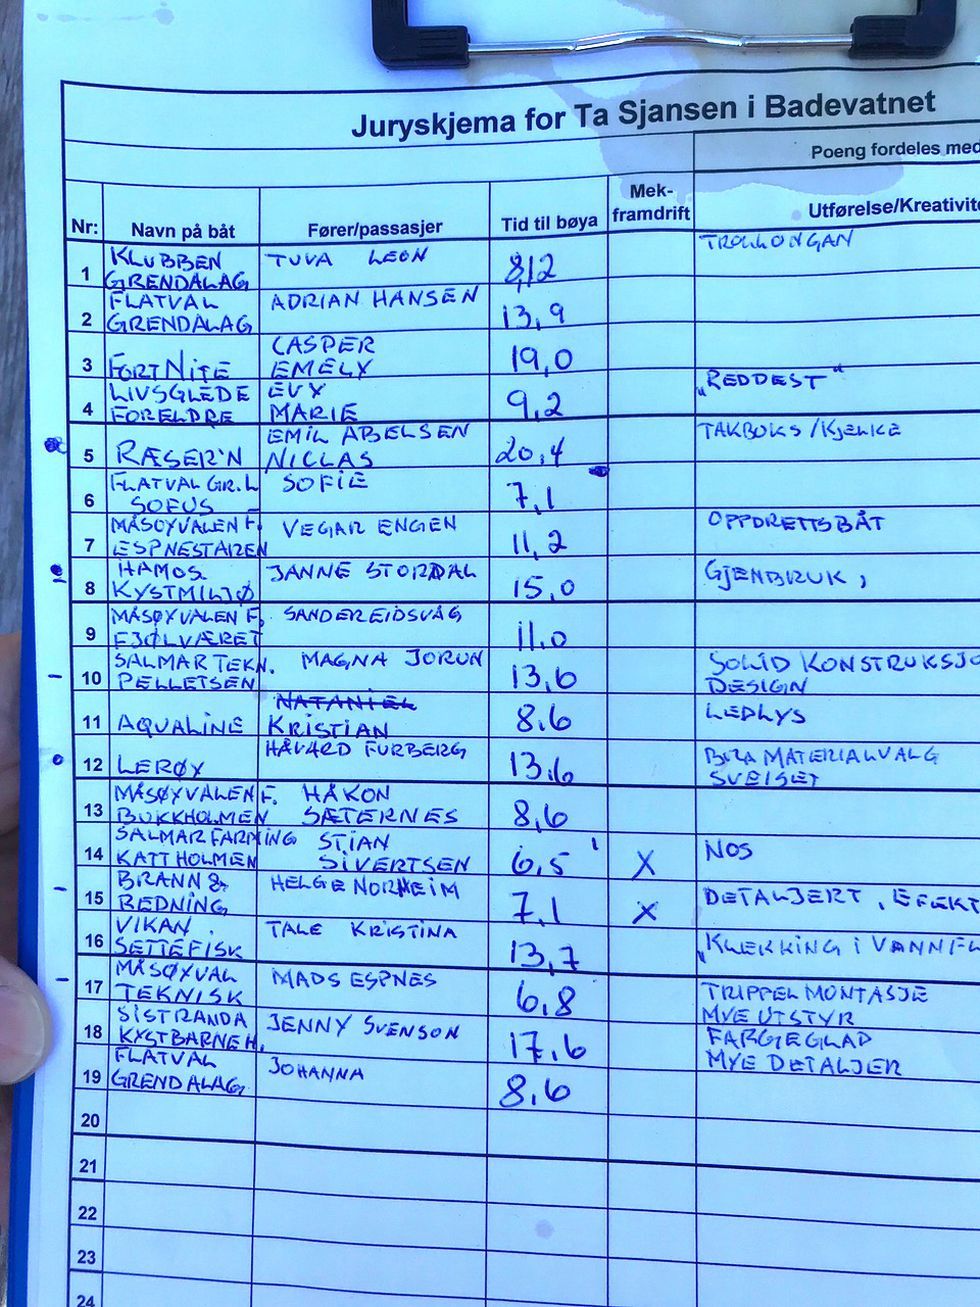 Juryskjema for Ta Sjansen i Badevatnet
Poeng fordeles med
Nr: Navn på båt Fører/passasjer Tid til bøya Mek-framdrift Utførelse/Kreativite
1 KLUBBEN GRENDALAG TUVA LEON 8,2 TROLLONGAN
2 FLATVAL GRENDALAG ADRIAN HANSEN 13,9
3 FORTNITE CASPER EMELY 19,0
4 LIVSGLEDE FORELDRE EVY MARIE 9,2 „REDDEST"
5 RÆSER'N EMIL ABELSEN NICLAS 20,4 TAKBOKS/KJELKE
6 FLATVAL GR.L SOFUS SOFIE 7,1
7 MÅSØYVALEN F. ESPNESTAREN VEGAR ENGEN 11,2 OPPDRETTSBÅT
8 HAMOS KYSTMILJØ JANNE STORDAL 15,0 GJENBRUK,
9 MÅSØYVALEN F. FJØLVÆRET SANDER EIDSVÅG 11,0
10 SALMAR TEKN. PELLETSEN MAGNA JORUN 13,6 SOLID KONSTRUKSJO DESIGN
11 AQUALINE NATANIEL KRISTIAN 8,6 LEDLYS
12 LERØY HÅVARD FURBERG 13,6 BRA MATERIALVALG SVEISET
13 MÅSØYVALEN F. BUKKHOLMEN HÅKON SÆTERNES 8,6
14 SALMAR FARMING KATTHOLMEN STIAN SIVERTSEN 6,5 X NOS
15 BRANN & REDNING HELGE NORHEIM 7,1 X DETALJERT, EFEKT
16 VIKAN SETTEFISK TALE KRISTINA 13,7 „KLEKKING I VANNFL
17 MÅSØYVAL TEKNISK MADS ESPNES 6,8 TRIPPEL MONTASJE MYE UTSTYR
18 SISTRANDA KYSTBARNEH. JENNY SVENSON 17,6 FARGEGLAD MYE DETALJER
19 FLATVAL GRENDALAG JOHANNA 8,6
20
21
22
23
24